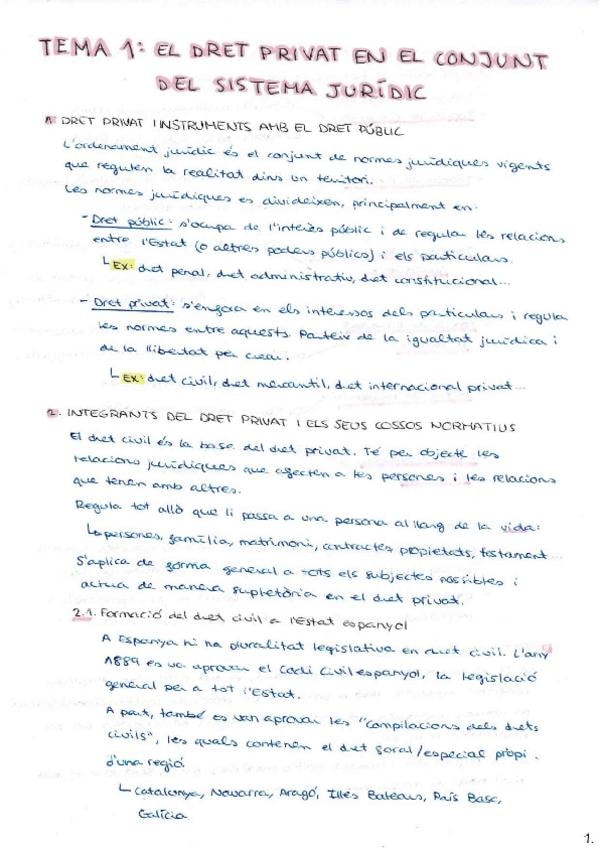 TEMA 1: EL DRET PRIVAT EN EL CONJUNT
DEL SISTEMA JURÍDIC
1. DRET PRIVAT I INSTRUMENTS AMB EL DRET PÚBLIC
L'ordenament jurídic és el conjunt de normes jurídiques vigents
que regulen la realitat dins un territori.
Les normes jurídiques es divideixen, principalment en:
- Dret públic: s'ocupa de l'interès públic i de regular les relacions
entre l'Estat (o altres poders públics) i els particulars.
Ex: dret penal, dret administratiu, dret constitucional...
- Dret privat: s'enfora en els interessos dels particulars i regula
les normes entre aquests. Parteix de la igualtat jurídica i
de la llibertat per crear.
Ex: dret civil, dret mercantil, dret internacional privat...
2. INTEGRANTS DEL DRET PRIVAT I ELS SEUS COSSOS NORMATIUS
El dret civil és la base del dret privat. Té per objecte les
relacions jurídiques que afecten a les persones i les relacions
que tenen amb altres.
Regula tot allò que li passa a una persona al llarg de la vida:
persones, família, matrimoni, contractes, propietats, testament...
S'aplica de forma general a tots els subjectes possibles i
actua de manera supletòria en el dret privat.
2.1. Formació del dret civil a l'Estat espanyol
A Espanya hi ha pluralitat legislativa en dret civil. L'any
1889 es va aprovar el Codi Civil espanyol, la legislació
general per a tot l'Estat.
A part, també es van aprovar les "compilacions dels drets
civils", les quals contenen el dret foral/especial propi
d'una regió
Catalunya, Navarra, Aragó, Illes Balears, País Basc,
Galícia
1.